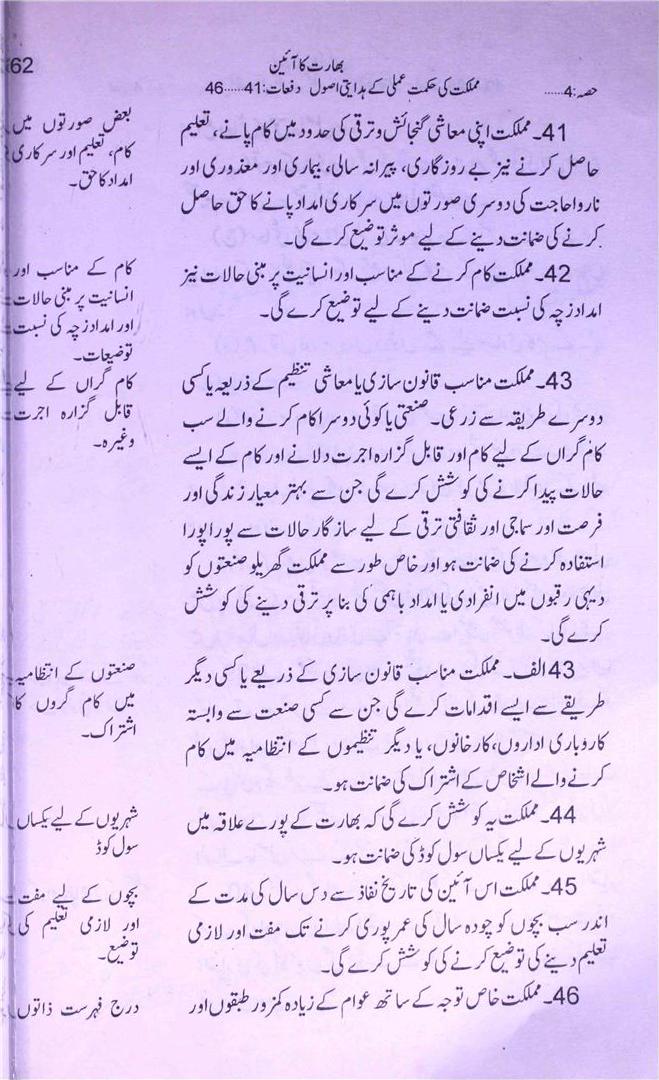 62
بھارت کا آئین
حصہ:4...... مملکت کی حکمت عملی کے ہدایتی اصول دفعات:41......46
41۔ مملکت اپنی معاشی گنجائش و ترقی کی حدود میں کام پانے، تعلیم
حاصل کرنے نیز بے روزگاری، پیرانہ سالی، بیماری اور معذوری اور
ناروا حاجت کی دوسری صورتوں میں سرکاری امداد پانے کا حق حاصل
کرنے کی ضمانت دینے کے لیے موثر توضیع کرے گی۔
بعض صورتوں میں
کام، تعلیم اور سرکاری
امداد کا حق۔
42۔ مملکت کام کرنے کے مناسب اور انسانیت پر مبنی حالات نیز
امداد زچہ کی نسبت ضمانت دینے کے لیے توضیع کرے گی۔
کام کے مناسب اور
انسانیت پر مبنی حالات
اور امداد زچہ کی نسبت
توضیعات۔
43۔ مملکت مناسب قانون سازی یا معاشی تنظیم کے ذریعہ یا کسی
دوسرے طریقہ سے زرعی۔ صنعتی یا کوئی دوسرا کام کرنے والے سب
کام گراں کے لیے کام اور قابل گزارہ اجرت دلانے اور کام کے ایسے
حالات پیدا کرنے کی کوشش کرے گی جن سے بہتر معیار زندگی اور
فرصت اور سماجی اور ثقافتی ترقی کے لیے سازگار حالات سے پورا پورا
استفادہ کرنے کی ضمانت ہو اور خاص طور سے مملکت گھریلو صنعتوں کو
دیہی رقبوں میں انفرادی یا امداد باہمی کی بنا پر ترقی دینے کی کوشش
کرے گی۔
کام گراں کے لیے
قابل گزارہ اجرت
وغیرہ۔
43 الف۔ مملکت مناسب قانون سازی کے ذریعے یا کسی دیگر
طریقے سے ایسے اقدامات کرے گی جن سے کسی صنعت سے وابستہ
کاروباری اداروں، کارخانوں، یا دیگر تنظیموں کے انتظامیہ میں کام
کرنے والے اشخاص کے اشتراک کی ضمانت ہو۔
صنعتوں کے انتظامیہ
میں کام گروں کا
اشتراک۔
44۔ مملکت یہ کوشش کرے گی کہ بھارت کے پورے علاقہ میں
شہریوں کے لیے یکساں سول کوڈ کی ضمانت ہو۔
شہریوں کے لیے یکساں
سول کوڈ
45۔ مملکت اس آئین کی تاریخ نفاذ سے دس سال کی مدت کے
اندر سب بچوں کو چودہ سال کی عمر پوری کرنے تک مفت اور لازمی
تعلیم دینے کی توضیع کرنے کی کوشش کرے گی۔
بچوں کے لیے مفت
اور لازمی تعلیم کی
توضیع۔
46۔ مملکت خاص توجہ کے ساتھ عوام کے زیادہ کمزور طبقوں اور
درج فہرست ذاتوں